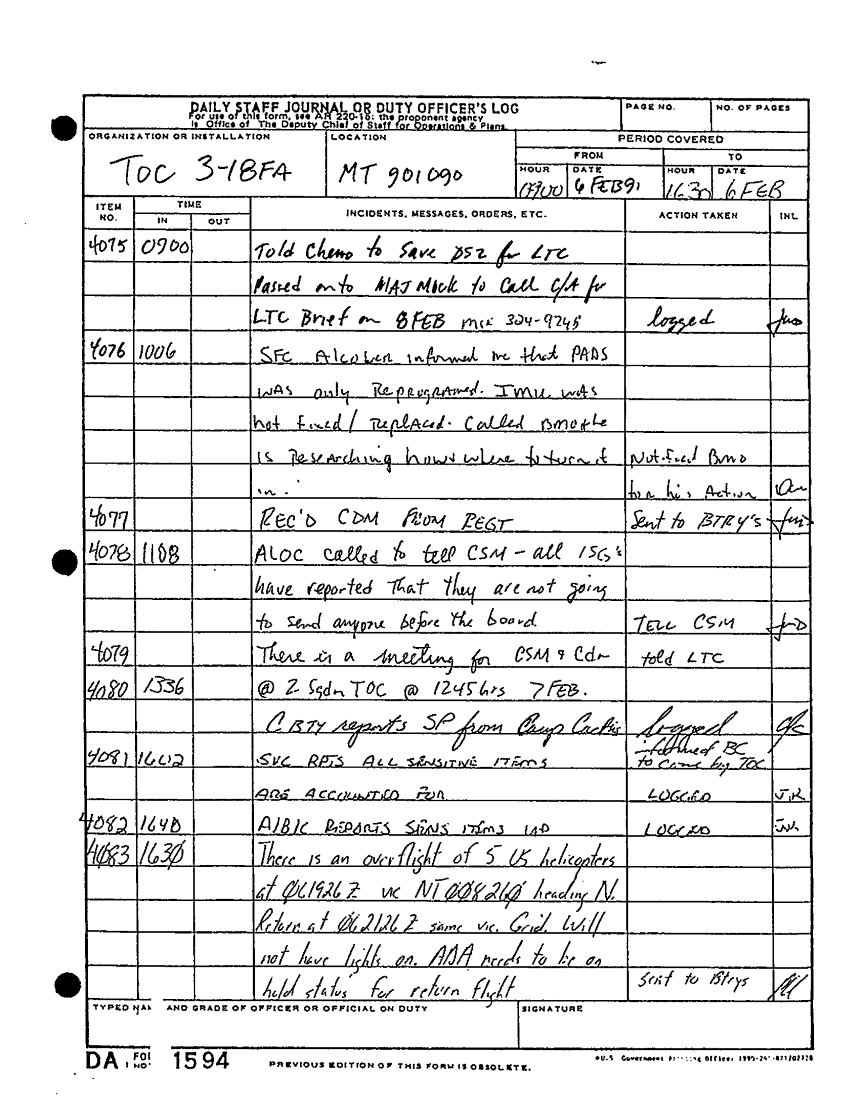 DAILY STAFF JOURNAL OR DUTY OFFICER'S LOG
For use of this form, see AR 220-15; the proponent agency
is Office of The Deputy Chief of Staff for Operations & Plans.
PAGE NO.
NO. OF PAGES
ORGANIZATION OR INSTALLATION
TOC 3-18FA
LOCATION
MT 901090
PERIOD COVERED
FROM
TO
HOUR
DATE
HOUR
DATE
0900
6 FEB 91
1630
6 FEB
ITEM NO.
TIME
IN
OUT
INCIDENTS, MESSAGES, ORDERS, ETC.
ACTION TAKEN
INL
4075 0900 Told Chemo to Save DS2 for LTC
Passed onto MAJ Mock to Call C/A for
LTC Brief on 8 FEB 324-9245 logged
4076 1006 SFC informed me that PADS
was only Reprogramed. IMU was
not fixed/Replaced. Called BMO & he
is Researching how & where to turn it Notified BMO
in. for his Action
4077 REC'D CDM FROM REGT Sent to BTRY's
4078 1108 ALOC called to tell CSM - all 1SG's
have reported that they are not going
to send anyone before the board TELL CSM
4079 There is a meeting for CSM & Cdr told LTC
4080 1336 @ 2 Sqdn TOC @ 1245 hrs 7 FEB.
C BTY reports SP from Camp Cactis logged
informed BC
to come by TOC
4081 1602 SVC RPTS ALL SENSITIVE ITEMS
ARE ACCOUNTED FOR LOGGED
4082 1640 A/B/C REPORTS SENS ITEMS LOGGED
4083 1630 There is an overflight of 5 US helicopters
at 061926Z vic NT008260 heading N.
Return at 062126Z same vic. Grid. Will
not have lights on. ADA needs to be on
hold status for return flight Sent to Btrys
TYPED NAME AND GRADE OF OFFICER OR OFFICIAL ON DUTY
SIGNATURE
DA 1594
PREVIOUS EDITION OF THIS FORM IS OBSOLETE.